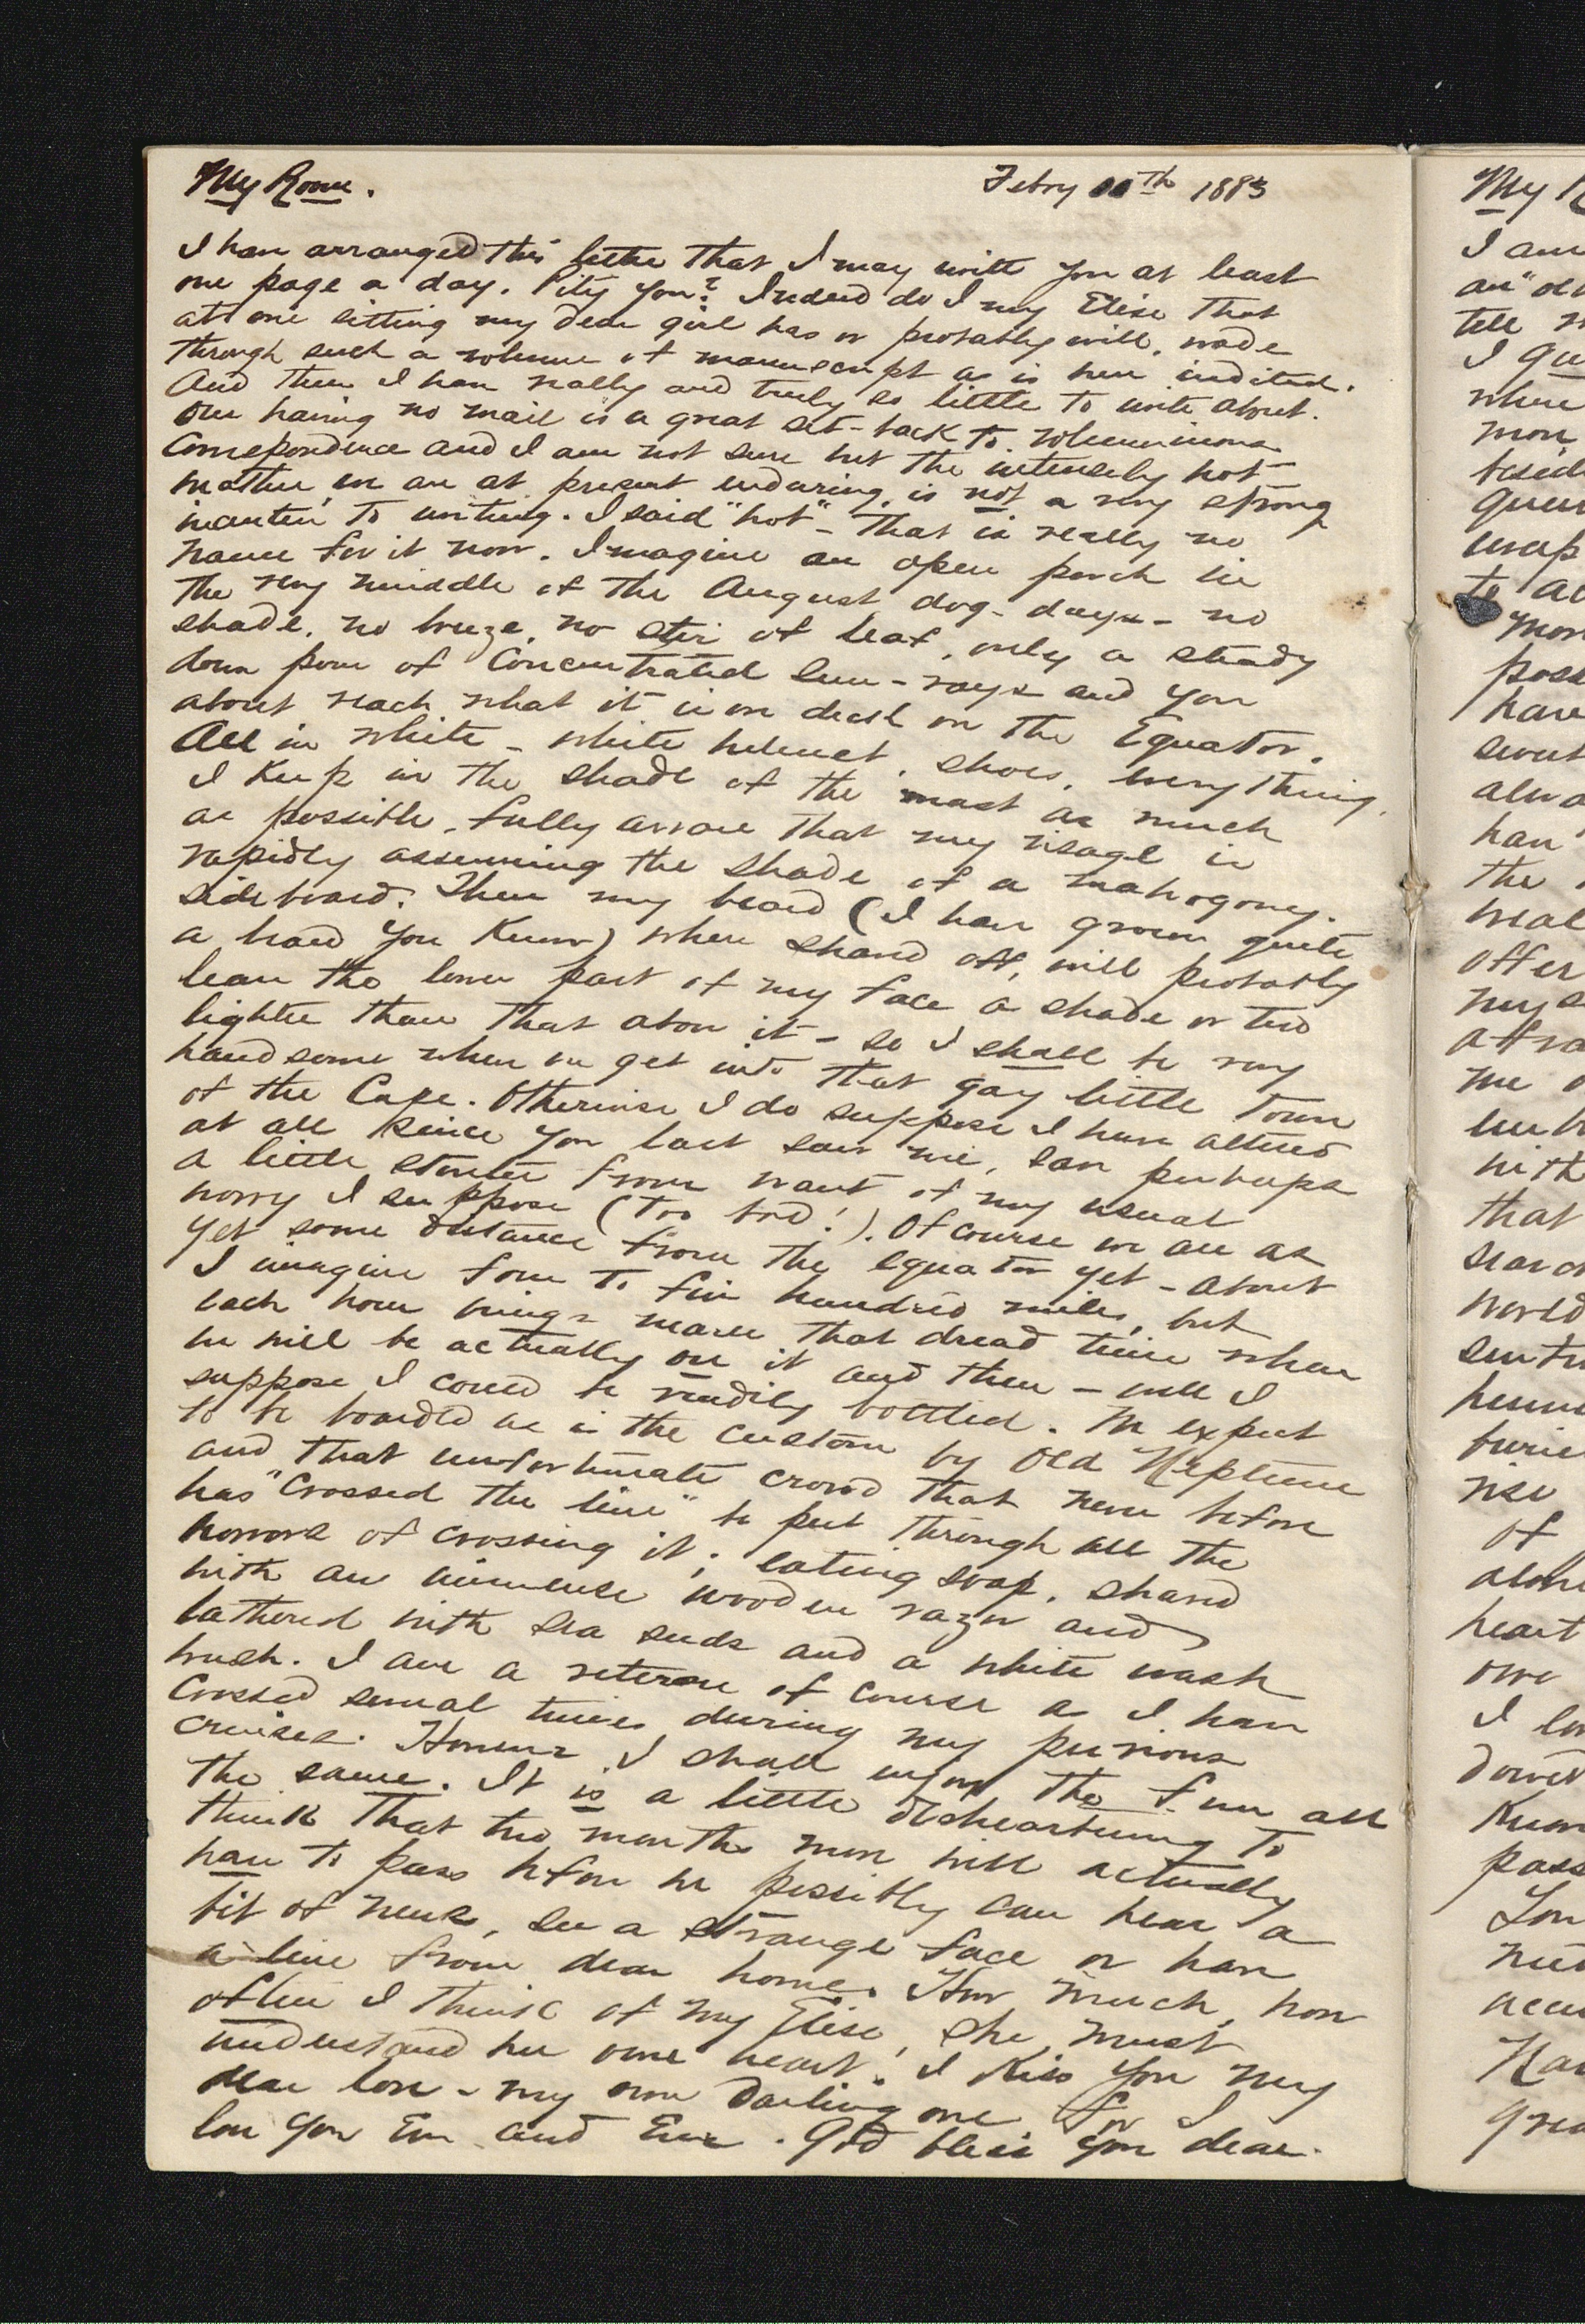 My Room. Febry 10th 1883
I have arranged this letter that I may write you at least
one page a day. Pity you? Indeed do I my Elise that
at one sitting my dear girl has or probably will, wade
through such a volume of manuscript as is here indited.
And then I have really and truly so little to write about.
Our having no mail is a great set-back to voluminous
Correspondence and I am not sure but the intensely hot
weather we are at present enduring, is not a very strong
incentive to writing. I said "hot" - that is really no
name for it now. Imagine an open porch in
the very middle of the August dog-days - no
shade, no breeze, no stir of leaf, only a steady
down pour of Concentrated Sun-rays and you
about reach what it is on deck on the Equator.
All in white - white helmet, shoes, everything.
I keep in the shade of the mast as much
as possible, fully aware that my visage is
rapidly assuming the shade of a mahogony
sideboard. Then my beard (I have grown quite
a beard you know) when shaved off, will probably
leave the lower part of my face a shade or two
lighter than that above it - so I shall be very
handsome when we get into that gay little town
of the Cape. Otherwise I do suppose I have altered
at all since you last saw me, save perhaps
a little stouter from want of my usual
worry I suppose (Too bad!). Of course we are as
yet some distance from the equator yet - about
I imagine four to five hundred miles, but
each hour brings nearer that dread time when
we will be actually on it and then - well I
suppose I could be readily bottled. We expect
to be boarded as is the custom by Old Neptune
and that unfortunate crowd that never before
has "Crossed the line" be put through all the
horrors of crossing it; eating soap, shaved
with an immense wooden razor and
lathered with sea suds and a white wash
brush. I am a veteran of course as I have
Crossed several times during my previous
cruises. However I shall enjoy the fun all
the same. It is a little disheartening to
think that two months more will actually
have to pass before we possibly can hear a
bit of news, see a strange face or have
a line from dear home. How much, how
often I think of my Elise, she must
understand her own heart. I kiss you my
dear love - my own darling one for I
love you Ever and Ever. God bless you dear.
My R
I am
an "ol
tell
I qu
when
mon
besid
quen
wrap
to al
Mon
poss
have
sweet
alwa
hav
the
real
offer
mys
afra
me
with
that
search
world
sent
burie
rise
of
alone
heart
own
I lo
dowe
Know
pass
You
need
Hav
grea